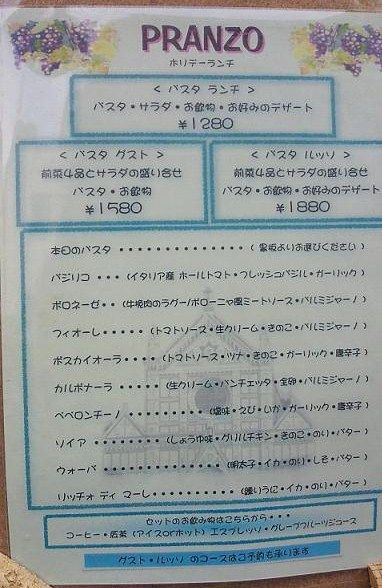 PRANZO
ホリデーランチ
< パスタ ランチ >
パスタ・サラダ・お飲物・お好みのデザート
¥1280
< パスタ グスト >
前菜4品とサラダの盛り合せ
パスタ・お飲物
¥1580
< パスタ ルッソ >
前菜4品とサラダの盛り合せ
パスタ・お飲物・お好みのデザート
¥1880
本日のパスタ ・・・・・・・・・・・・・・ ( 黒板よりお選びください )
バジリコ ・・・ (イタリア産 ホールトマト・フレッシュバジル・ガーリック )
ボロネーゼ・・ (牛挽肉のラグー/ボローニャ風ミートソース・パルミジャーノ )
フィオーレ・・・・・ (トマトソース・生クリーム・きのこ・パルミジャーノ )
ボスカイオーラ ・・・・ (トマトソース・ツナ・きのこ・ガーリック・唐辛子 )
カルボナーラ ・・・・・ (生クリーム・パンチェッタ・全卵・パルミジャーノ )
ペペロンチーノ ・・・・・・・・ (塩味・えび・いか・ガーリック・唐辛子 )
ソイア ・・・ (しょうゆ味・グリルチキン・きのこ・のり・バター )
ウォーバ ・・・・・・・・・・・・・ (明太子・イカ・のり・しそ・バター )
リッチォ ディ マーレ ・・・・・・・・・・ (練りうに・イカ・のり・バター )
セットのお飲み物はこちらから・・・
コーヒー・紅茶 (アイスorホット) エスプレッソ・グレープフルーツジュース
グスト・ルッソ のコースはご予約も承ります